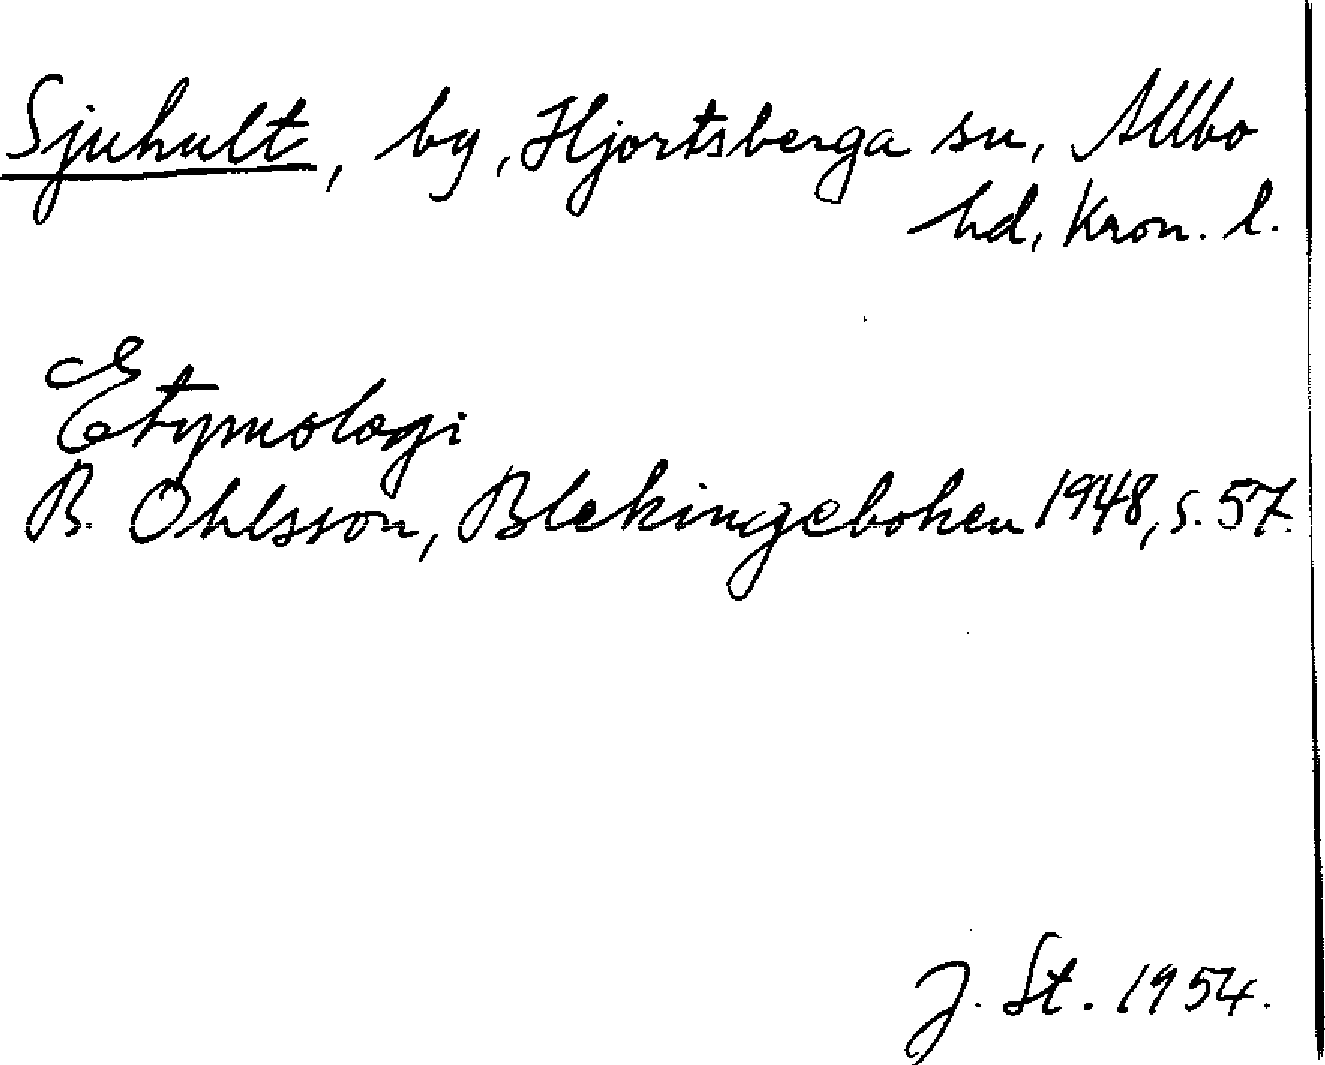 Sjuhult, by, Hjortsberga sn, Allbo
hd, Kron. l.
Etymologi
B. Ohlsson, Blekingeboken 1948, s. 57.
J. St. 1954.